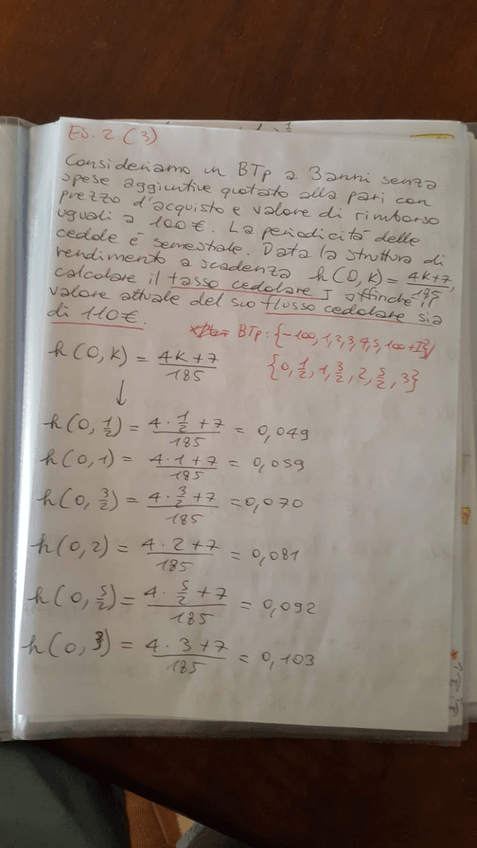 Es. 2 (3)
Consideriamo un BTp a 3 anni senza
spese aggiuntive quotato alla pari con
prezzo d'acquisto e valore di rimborso
uguali a 100€. La periodicità delle
cedole è semestrale. Data la struttura di
rendimento a scadenza h(0,k) = (4k+7)/185,
calcolare il tasso cedolare I affinché il
valore attuale del suo flusso cedolare sia
di 110€.
BTp: {-100, 1, 2, 3, 4, 5, 100+I}
{0, 1/2, 1, 3/2, 2, 5/2, 3}
h(0,k) = (4k+7)/185
↓
h(0, 1/2) = (4·1/2+7)/185 = 0,049
h(0,1) = (4·1+7)/185 = 0,059
h(0, 3/2) = (4·3/2+7)/185 = 0,070
h(0,2) = (4·2+7)/185 = 0,081
h(0, 5/2) = (4·5/2+7)/185 = 0,092
h(0,3) = (4·3+7)/185 = 0,103